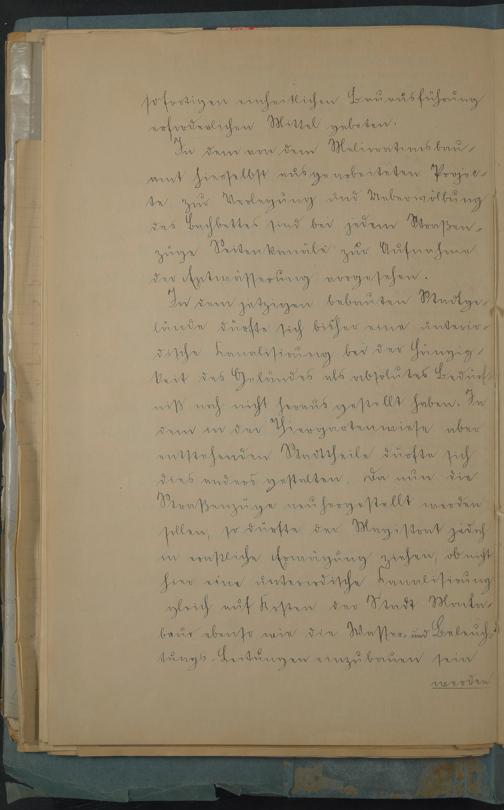 sofortigen einheitlichen Bauausführung
erforderlichen Mittel geboten.
In dem von dem Meliorationsbau-
amt hierselbst ausgearbeiteten Projek-
te zur Verlegung und Ueberwölbung
des Bachbettes sind bei jedem Straßen-
zuge Seitenkanäle zur Aufnahme
der Entwässerung vorgesehen.
In dem jetzigen bebauten Stadtge-
lände dürfte sich bisher eine unterir-
dische Kanalisirung bei der Hängig-
keit des Geländes als absolutes Bedürf-
niß noch nicht herausgestellt haben. In
dem in der Thiergartenwiese aber
entstehenden Stadttheile dürfte sich
dies anders gestalten. Da nun die
Straßenzüge neu hergestellt werden
sollen, so dürfte der Magistrat jedoch
in ernstliche Erwägung ziehen, ob nicht
hier eine unterirdische Kanalisirung
gleich auf Kosten der Stadt
baur ebenso wie die Wasser- und Beleuch-
tungs-Leitungen einzubauen sein
werden